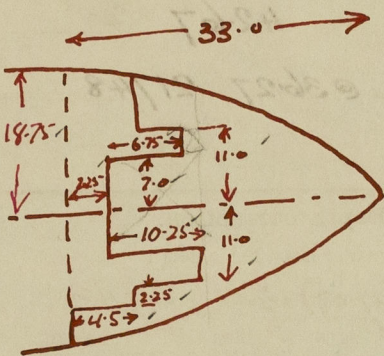 33.0
18.75
6.75
11.0
2.25
7.0
10.25
11.0
2.25
4.5